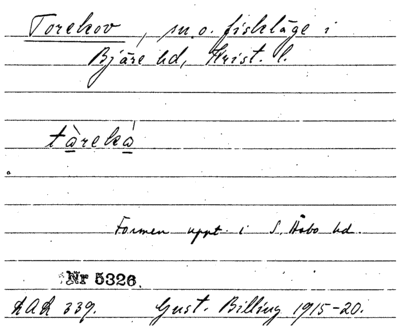 Torekov, m.o. fiskläge i
Bjäre hd, Krist. l.
tàrekà
Formen uppt. i S. Åsbo hd.
Nr 5326.
LAL 339. Gust. Billing 1915-20.